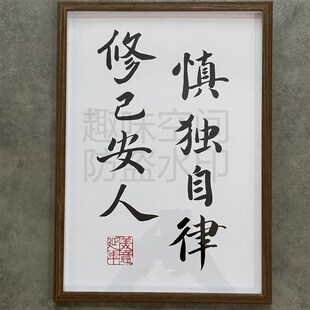 慎独自律
修己安人
趣味空间
防盗水印